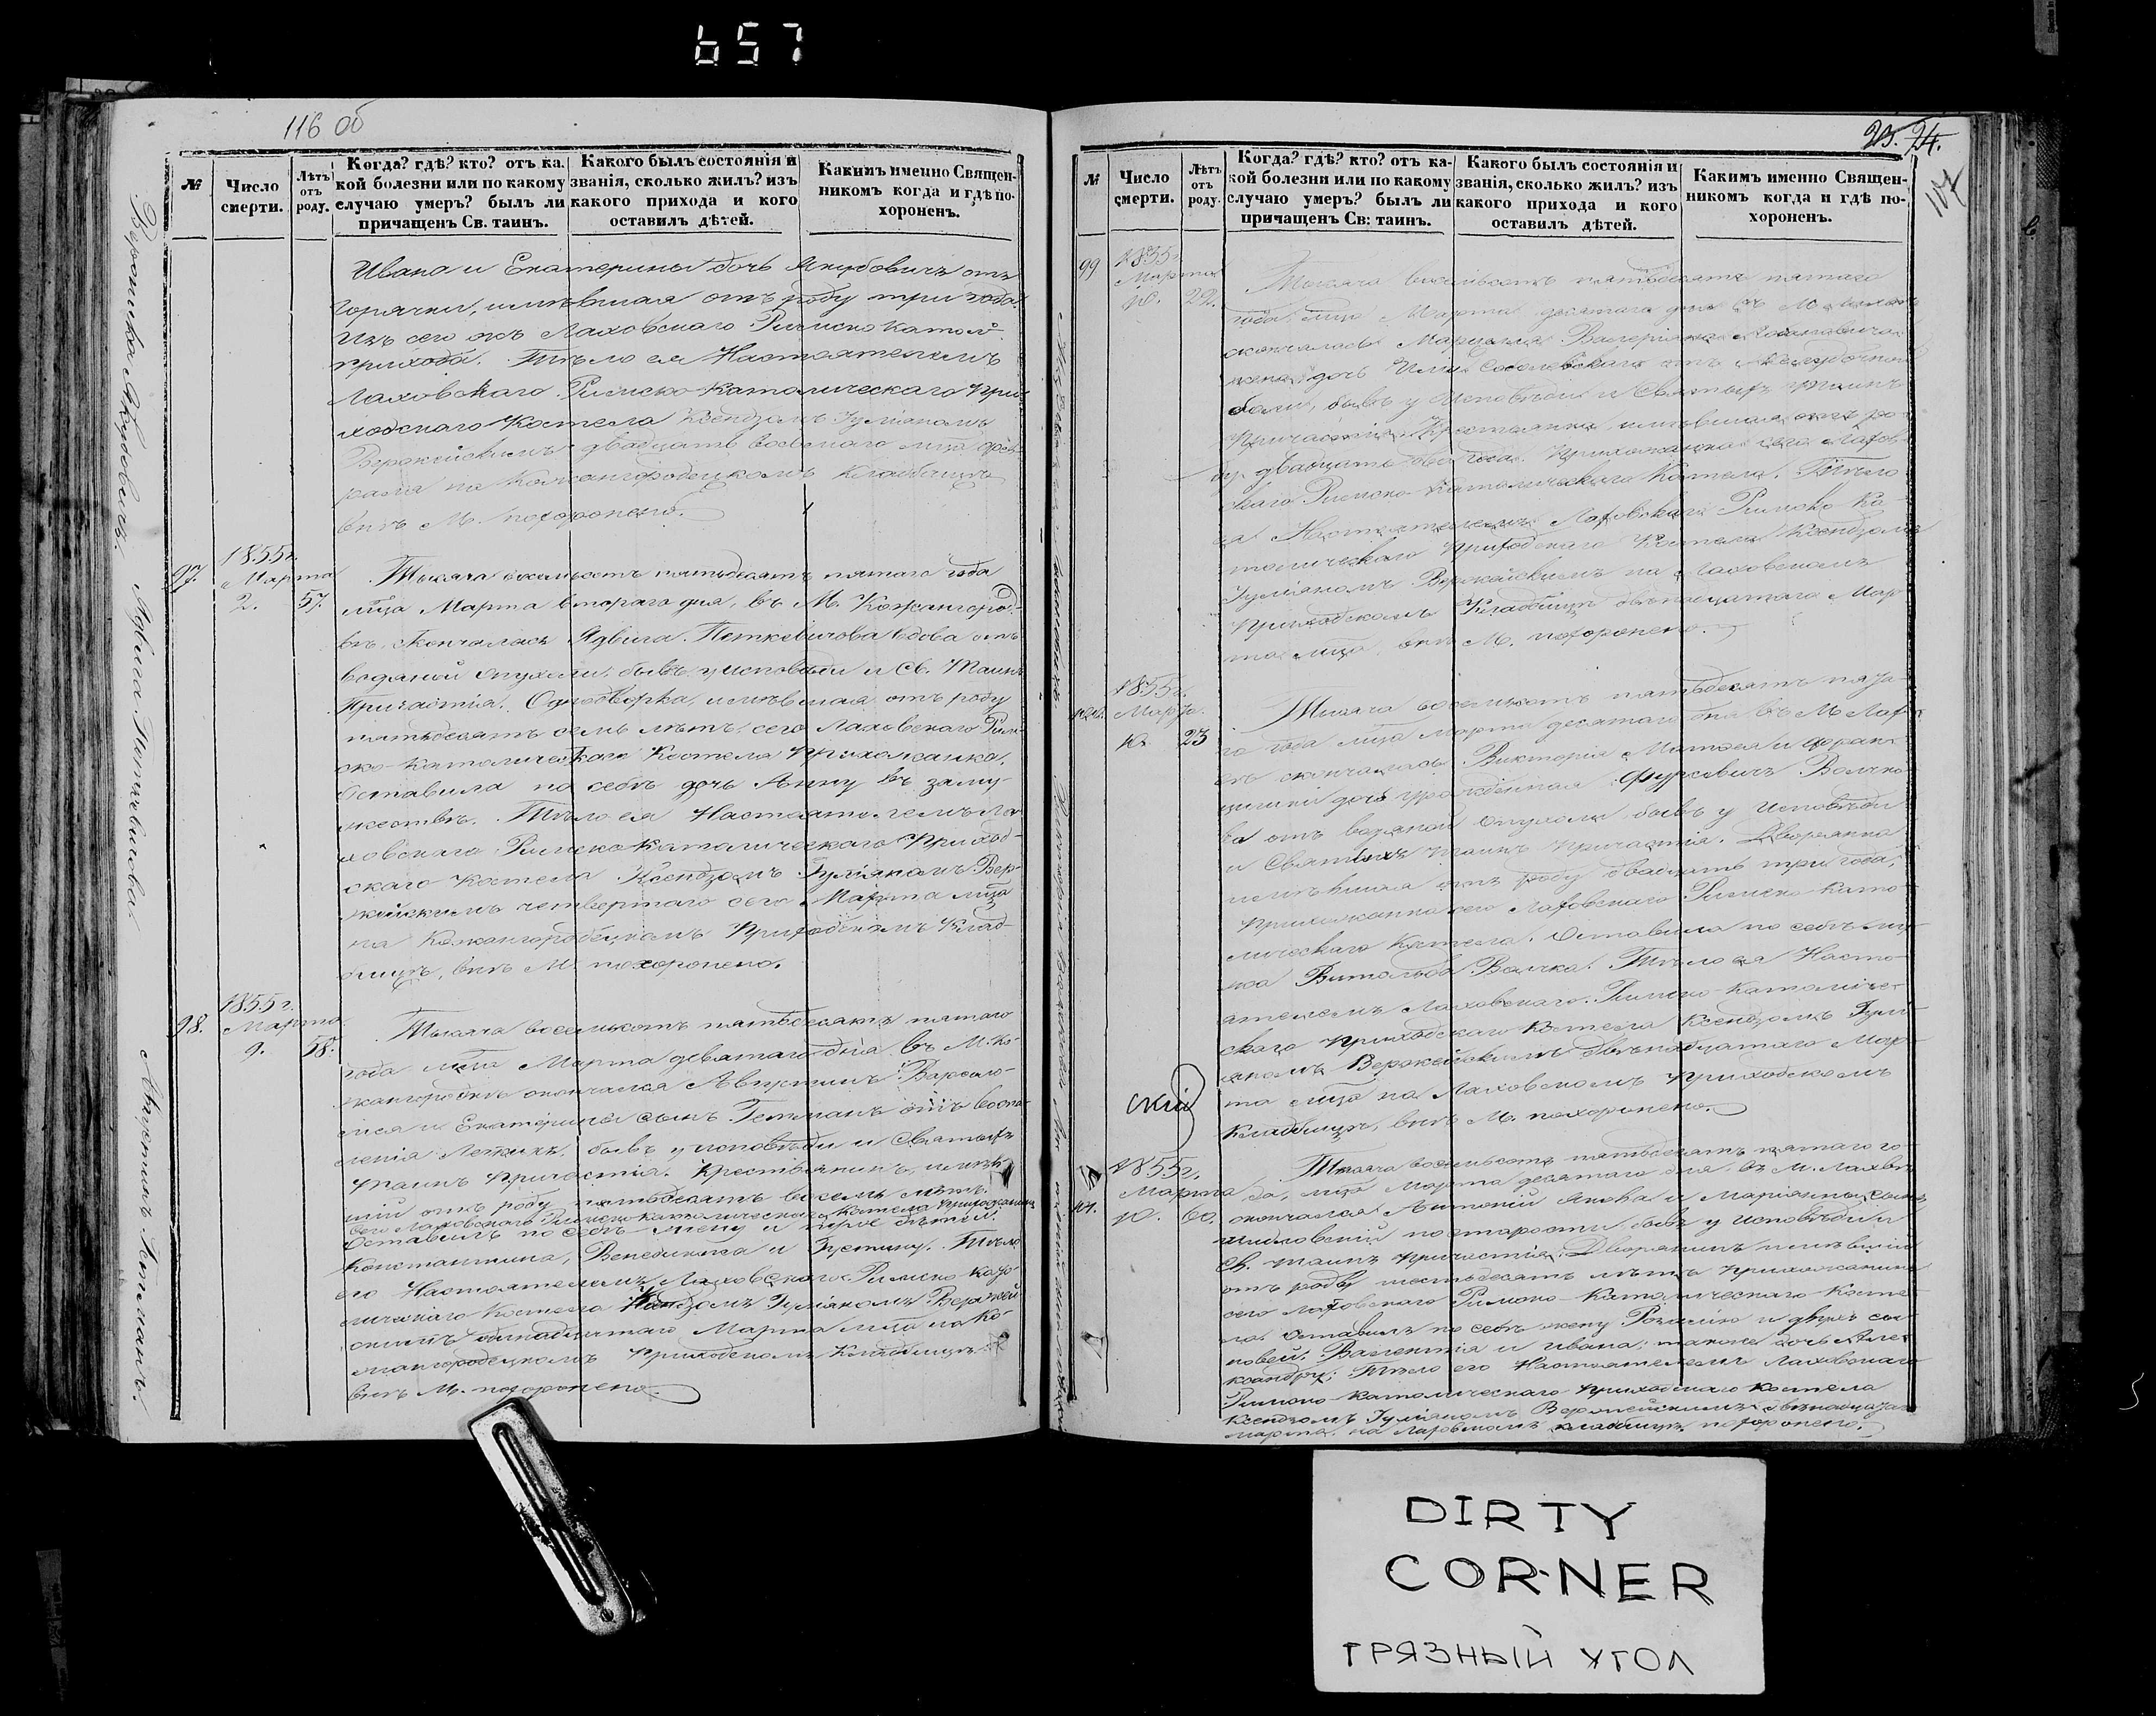 657
116 об
№
Число смерти.
Лѣтъ отъ роду.
Когда? гдѣ? кто? отъ ка-
кой болезни или по какому
случаю умеръ? былъ ли
причащенъ Св. таинъ.
Какого былъ состоянія и
званія, сколько жилъ? изъ
какого прихода и кого
оставилъ дѣтей.
Какимъ именно Священ-
никомъ когда и гдѣ по-
хороненъ.
Ивана и Екатерины дочь Якубовичъ отъ
горячки, имѣвшая отъ роду три года.
Изъ сего жъ Лаховскаго Римско Катол.
прихода. Тѣло ея Настоятелемъ
Лаховскаго Римско-Католическаго При-
ходскаго Костела Ксендзомъ Гуліяномъ
Вержейскимъ двадцать восьмаго мца Фев-
раля на Кожангородецкомъ Кладбищѣ
внѣ М. похоронено.
97.
1855 г.
Марта
2.
57.
Тысяча восемьсотъ пятьдесятъ пятаго года
мца Марта втораго дня, въ М. Кожангород-
кѣ, скончалась Ядвига Петкевичова вдова отъ
водяной опухоли, бывъ у исповѣди и Св. Таинъ
Причастія. Однодворка, имѣвшая отъ роду
пятьдесятъ семь лѣтъ, сего Лаховскаго Рим-
ско-Католическаго Костела прихожанка.
Оставила по себѣ дочь Анну въ заму-
жествѣ. Тѣло ея Настоятелемъ Ла-
ховскаго Римско Католическаго Приход-
скаго Костела Ксендзомъ Гуліяномъ Вер-
жейскимъ четвертаго сего Марта мца
на Кожангородецкомъ Приходскомъ Клад-
бищѣ, внѣ М. похоронено.
98.
1855 г.
Марта
9.
58.
Тысяча восемьсотъ пятьдесятъ пятаго
года мца Марта девятаго дня въ М. Ко-
жангродкѣ скончался Августинъ Варфоло-
мея и Екатерины сынъ Гетманъ отъ воспа-
ленія Легкихъ, бывъ у исповѣди и Святыхъ
Таинъ Причастія. Крестьянинъ, имѣв-
шій отъ роду пятьдесятъ восемь лѣтъ.
сего Лаховскаго Римско Католическаго Костела прихожанинъ
Оставилъ по себѣ жену и трое дѣтей.
Константина, Венедикта и Густину. Тѣло
его Настоятелемъ Лаховскаго Римско Като-
личскаго Костела Ксендзомъ Гуліяномъ Вержей-
скимъ Марта мца на Ко-
жангородецкомъ Приходскомъ Кладбищѣ
внѣ М. похоронено.
Якубовичъ.
Ядвига Петкевичова
Августинъ Гетманъ.
24.
№
Число смерти.
Лѣтъ отъ роду.
Когда? гдѣ? кто? отъ ка-
кой болезни или по какому
случаю умеръ? былъ ли
причащенъ Св: таинъ.
Какого былъ состоянія и
званія, сколько жилъ? изъ
какого прихода и кого
оставилъ дѣтей.
Какимъ именно Священ-
никомъ когда и гдѣ по-
хороненъ.
99
1855 г.
Марта
10.
22.
Тысяча восемьсотъ пятьдесятъ пятаго
года мца Марта десятаго дня въ М.
скончалась
жена, дочь
боли, бывъ у Исповѣди и Святыхъ Таинъ
Причастія. Крестьянка, имѣвшая отъ ро-
ду двадцать два года. Прихожанка сего Лахов-
скаго Римско-Католическаго Костела. Тѣло
ея Настоятелемъ Лаховскаго Римско Ка-
толическаго Приходскаго Костела Ксендзомъ
Гуліяномъ Вержейскимъ на Лаховскомъ
Приходскомъ Кладбищѣ двѣнадцатаго Мар-
та мца, внѣ М. похоронено.
100.
1855 г.
Марта
10.
23
Тысяча восемьсотъ пятьдесятъ пята-
го года мца Марта десятаго дня въ М. Лах-
вѣ скончалась Викторія Матвея и Фран-
цишки дочь урожденная Фурсевичъ Волчко-
ва отъ водяной опухоли бывъ у Исповѣди
и Святыхъ Таинъ Причастія. Дворянка
имѣвшая отъ роду двадцать три года,
Прихожанка сего Лаховскаго Римско Като-
лическаго Костела. Оставила по себѣ му-
жа Витольда Волчка. Тѣло ея Насто-
ятелемъ Лаховскаго Римско-Католиче-
скаго Приходскаго Костела Ксендзомъ Гулі-
яномъ Вержейскимъ двѣнадцатаго Мар-
та мца на Лаховскомъ Приходскомъ
Кладбищѣ, внѣ М. похоронено.
скій
101.
1855 г.
Марта
10.
60.
Тысяча восемьсотъ пятьдесятъ пятаго го-
да, мца Марта десятаго дня, въ М. Лахвѣ
скончался Антоній Якова и Маріянны сынъ
по старости бывъ у Исповѣди и
Св. Таинъ Причастія. Дворянинъ имѣвшій
отъ роду шестьдесятъ лѣтъ Прихожанинъ
сего Лаховскаго Римско-Католическаго Косте-
ла. Оставилъ по себѣ жену Розалію и двухъ сы-
новей, Валентія и Ивана; также дочь Але-
ксандру: Тѣло его Настоятелемъ Лаховскаго
Римско-Католическаго Приходскаго Костела
Ксендзомъ Гуліяномъ Вержейскимъ двѣнадцатаго
марта на Лаховскомъ кладбищѣ похоронено.
DIRTY
CORNER
ГРЯЗНЫЙ УГОЛ